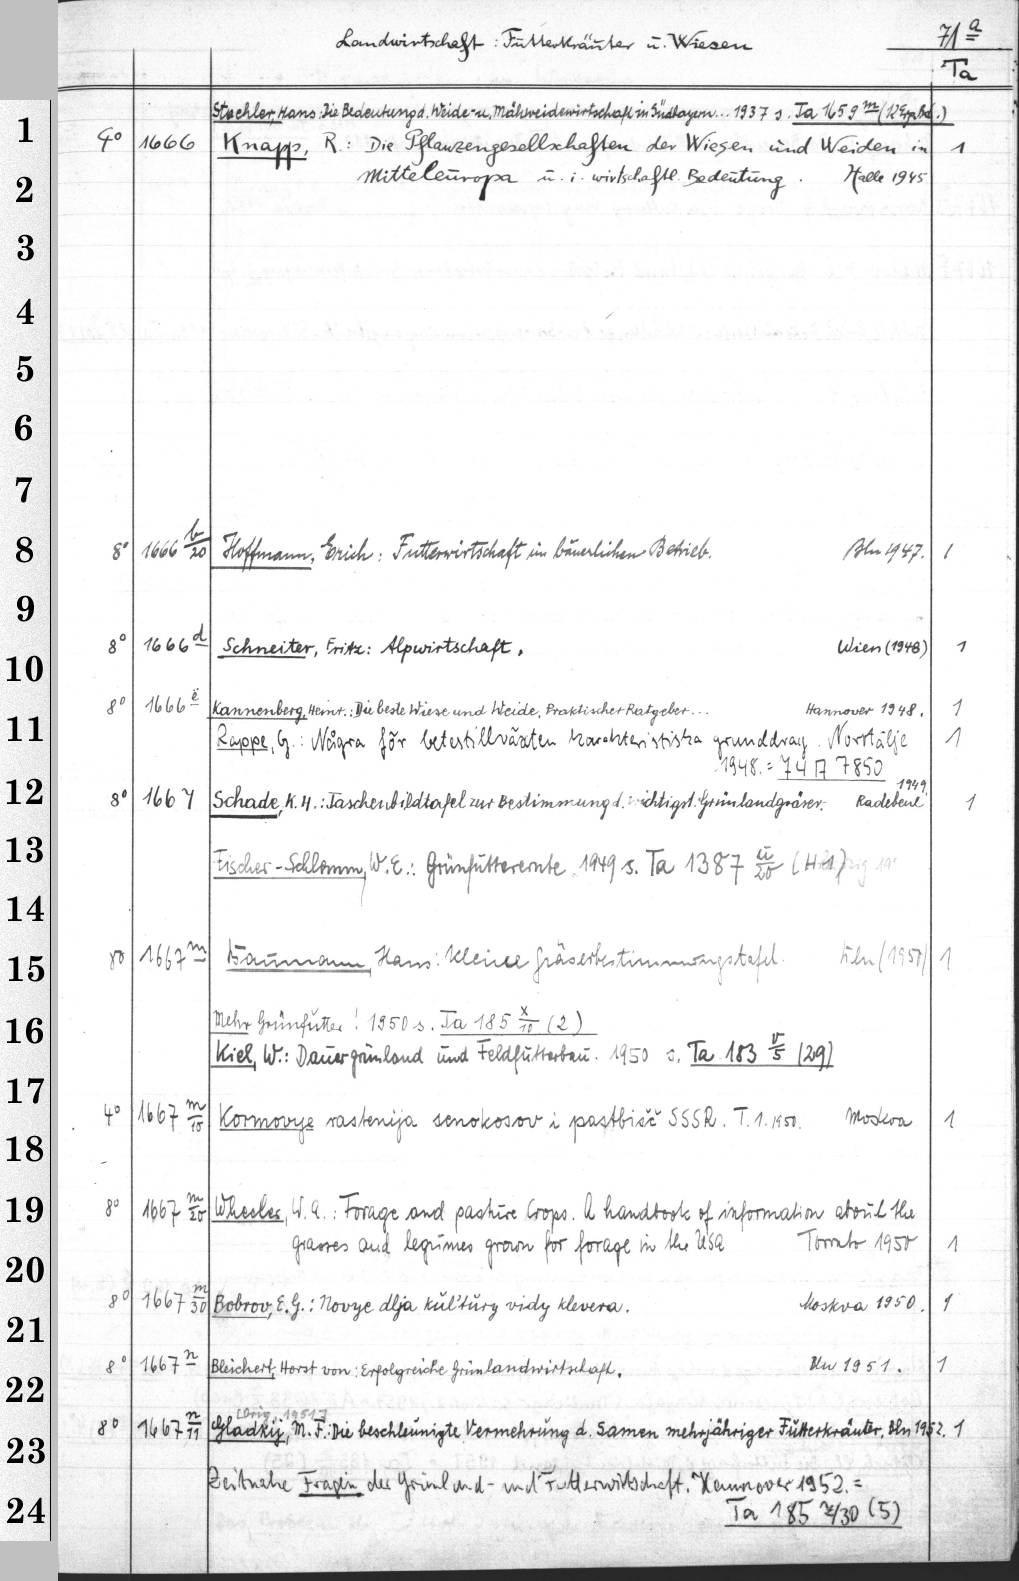 Landwirtschaft: Futterkräuter u. Wiesen 71 a
Ta
Staehler, Hans: Die Bedeutung d. Weide- u. Mähweidewirtschaft in Südbayern... 1937 s. Ta 1659 m (12 Ergbd.)
1
4° 1666 Knapp, R.: Die Pflanzengesellschaften der Wiesen und Weiden in 1
2 Mitteleuropa u. i. wirtschaftl. Bedeutung. Halle 1945
3
4
5
6
7
8 8° 1666 b/20 Hoffmann, Erich: Futterwirtschaft im bäuerlichen Betrieb. Bln 1947. 1
9
10 8° 1666 d Schneiter, Fritz: Alpwirtschaft. Wien (1948) 1
8° 1666 e Kannenberg, Heinr.: Die beste Wiese und Weide. Praktischer Ratgeber... Hannover 1948. 1
11 Rappe, G.: Några för betestillväxten karakteristiska grunddrag. Norrtälje 1
1948. = 74 7850
12 8° 1667 Schade, K. H.: Taschenbildtafel zur Bestimmung d. wichtigst. Grünlandgräser. Radebeul 1949. 1
13 Fischer-Schlemm, W. E.: Grünfutterernte 1949 s. Ta 1387 u/20
14
15 8° 1667 m Baumann, Hans: Kleine Gräserbestimmungstafel. (1950) 1
16 Mehr Grünfutter! 1950 s. Ta 185 x/10 (2)
Kiel, W.: Dauergrünland und Feldfutterbau. 1950 s. Ta 183 v/5 (29)
17 4° 1667 m/10 Kormovye rastenija senokosov i pastbišč SSSR. T. 1. 1950. Moskva 1
18
19 8° 1667 m/20 Wheeler, W. A.: Forage and pasture Crops. A handbook of information about the
grasses and legumes grown for forage in the USA Toronto 1950 1
20 8° 1667 m/30 Bobrov, E. G.: Novye dlja kul'tury vidy klevera. Moskva 1950. 1
21
22 8° 1667 n Bleichert, Horst von: Erfolgreiche Grünlandwirtschaft. Bln 1951. 1
[Orig. 1951]
23 8° 1667 n/11 Gladkij, M. F.: Die beschleunigte Vermehrung d. Samen mehrjähriger Futterkräuter. Bln 1952. 1
Zeitnahe Fragen der Grünland- und Futterwirtschaft. Hannover 1952. =
24 Ta 185 z/30 (5)